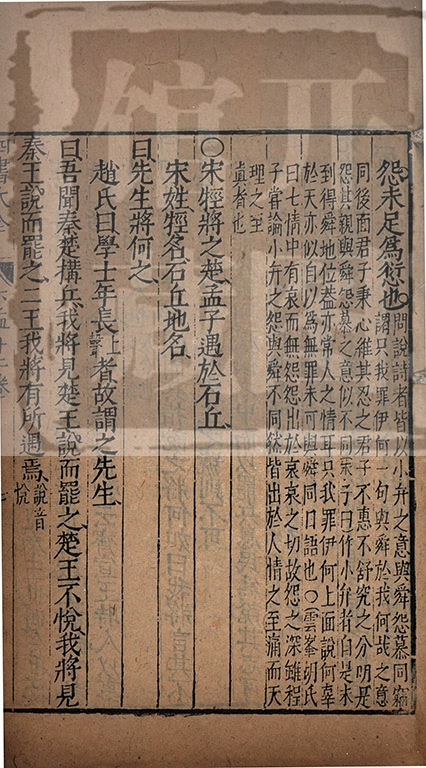 怨未足爲愆也問說詩者皆以小弁之意與舜怨慕同竊
謂只我罪伊何一句與舜於我何哉之意
同後面君子秉心維其忍之君子不惠不舒究之分明是
怨其親與舜怨慕之意似不同朱子曰作小弁者自是未
到得舜地位蓋亦常人之情耳只我罪伊何上面說何辜
於天亦似自以爲無罪未可與舜同日語也〇雲峯胡氏
曰七情中有哀而無怨怨出於哀哀之切故怨之深雖程
子嘗論小弁之怨與舜不同然皆出於人情之至痛而天
理之至
眞者也
〇宋牼將之楚孟子遇於石丘
宋姓牼名石丘地名
曰先生將何之
趙氏曰學士年長上聲者故謂之先生
曰吾聞秦楚構兵我將見楚王說而罷之楚王不悅我將見
秦王說而罷之二王我將有所遇焉說音
悅